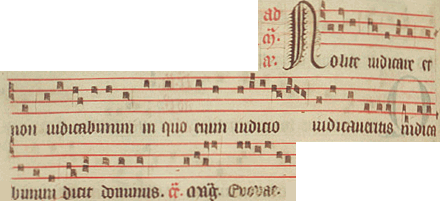 ad
Nolite iudicare et
non iudicabimini in quo enim iudicio iudicaueritis iudica
bimini dicit dominus. Euouae.